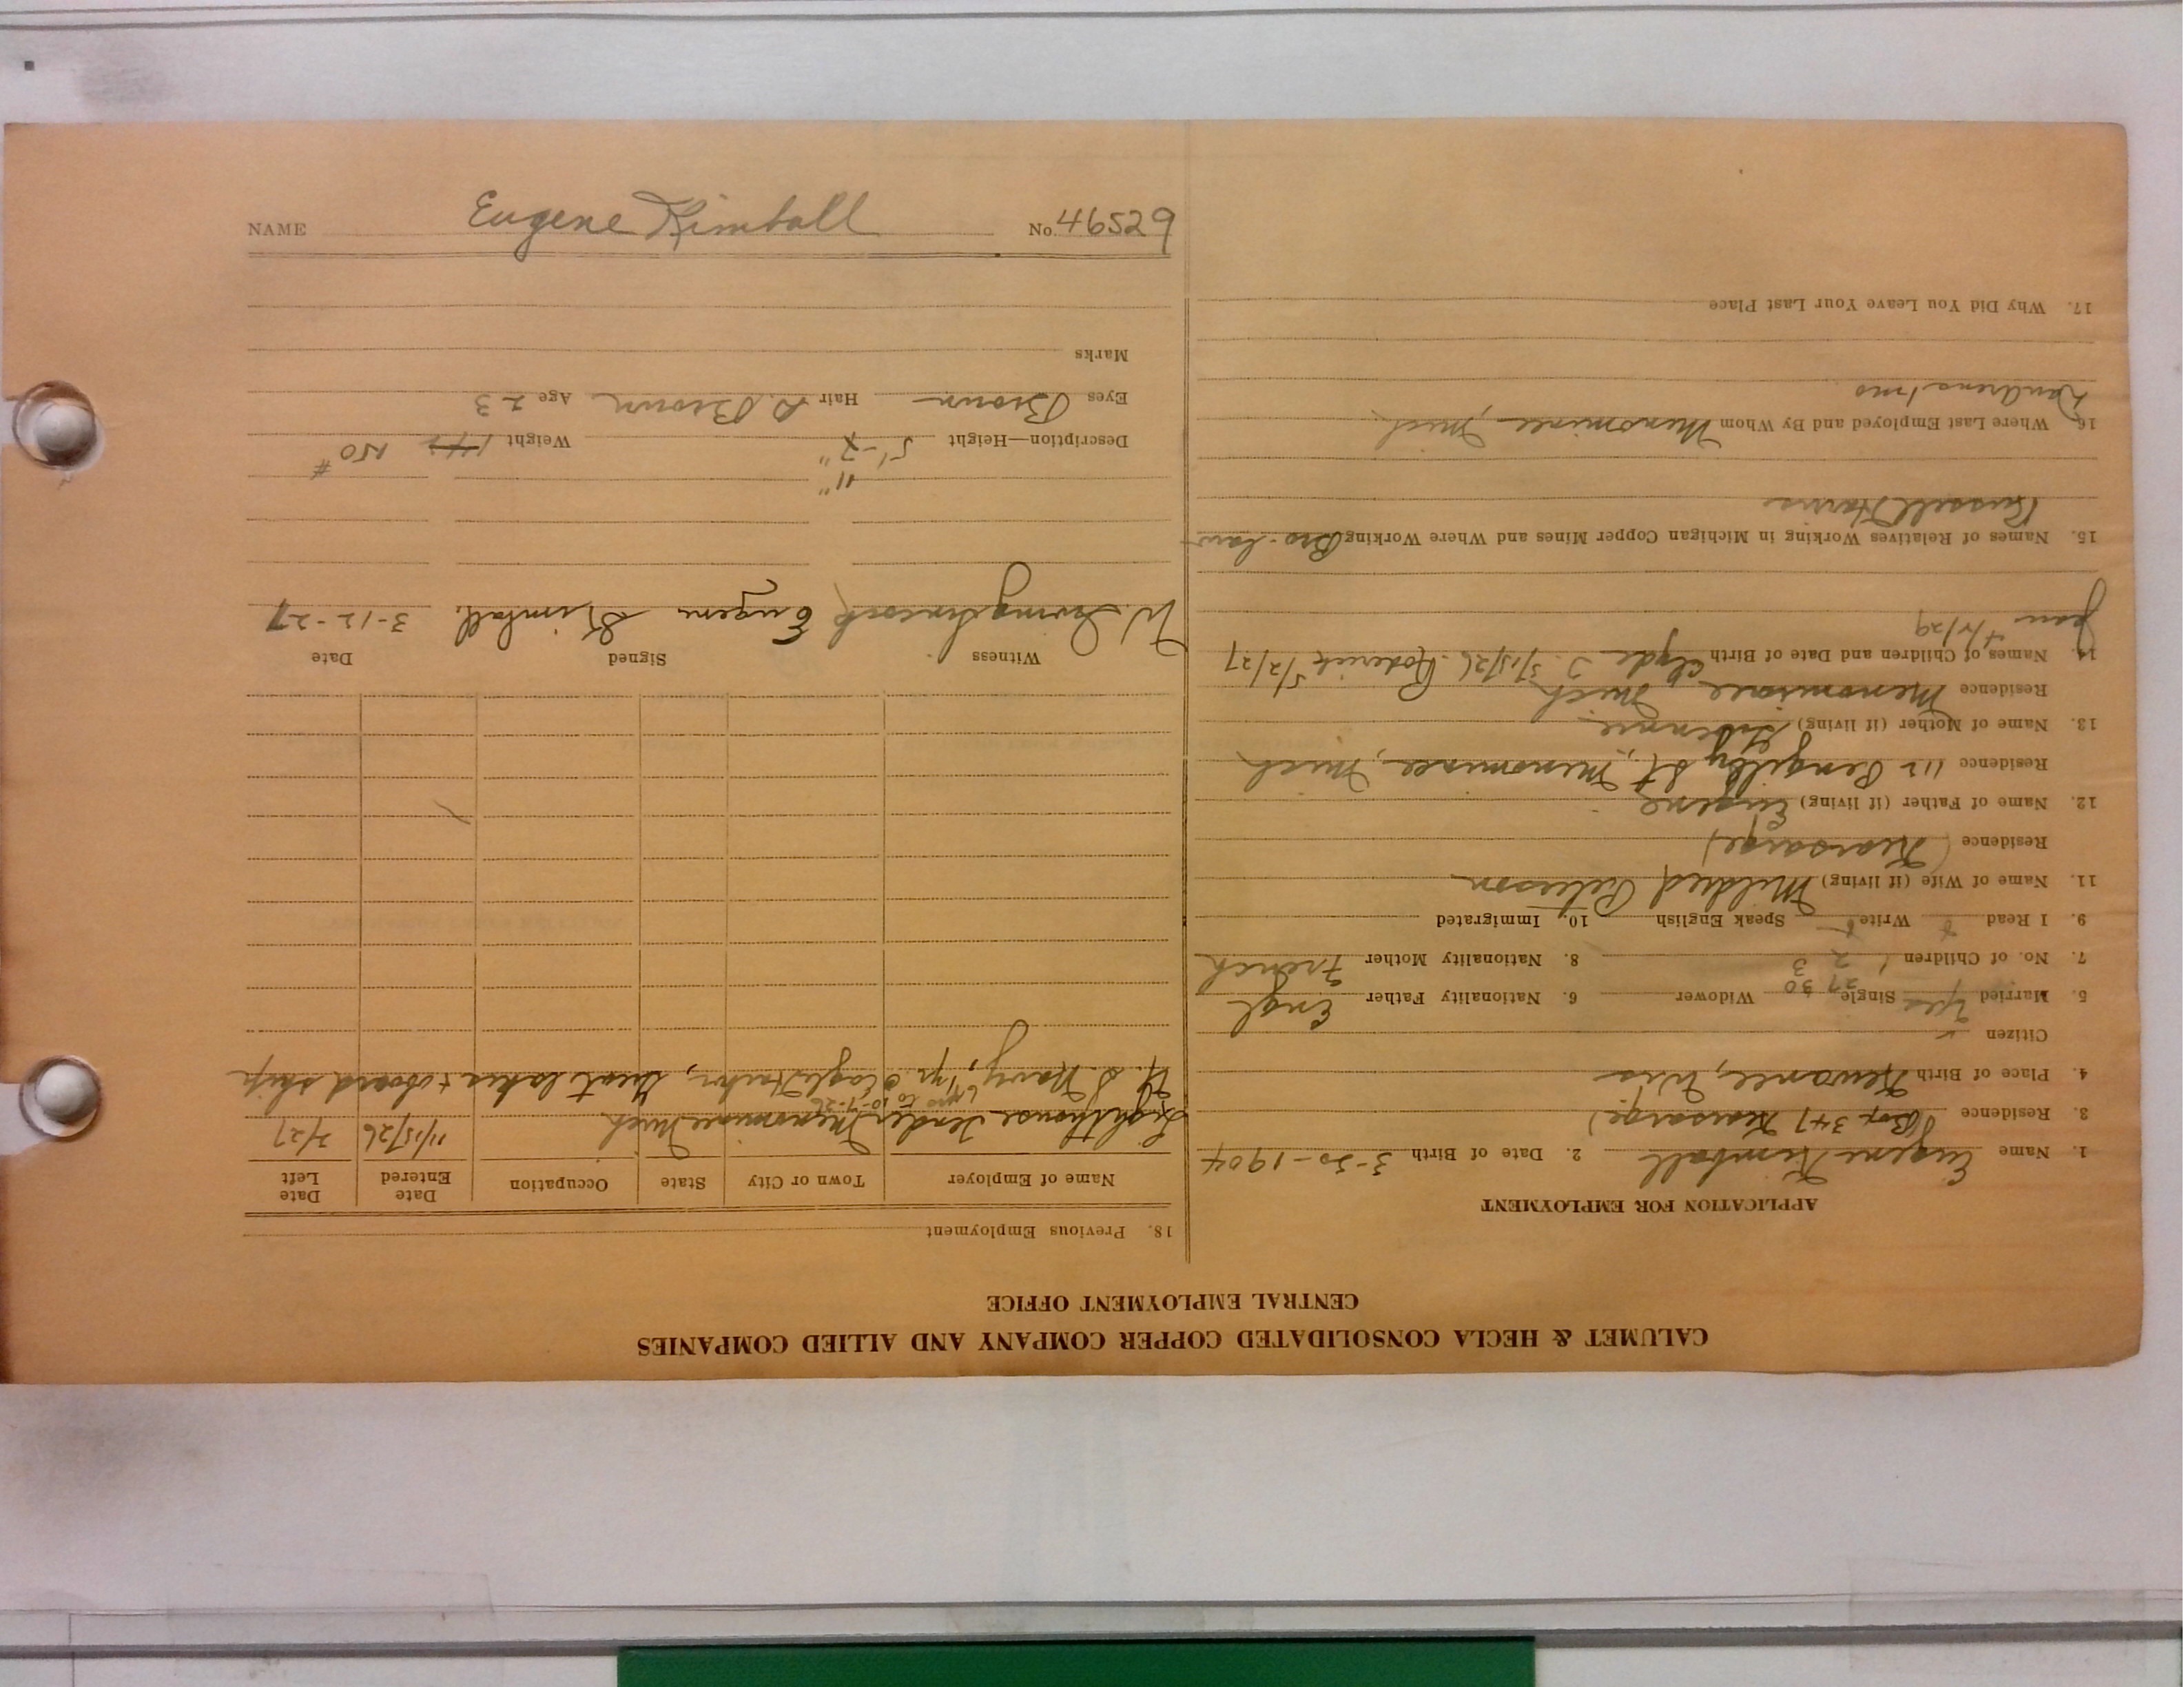 CALUMET & HECLA CONSOLIDATED COPPER COMPANY AND ALLIED COMPANIES
CENTRAL EMPLOYMENT OFFICE
APPLICATION FOR EMPLOYMENT
1. Name Eugene Kimball 2. Date of Birth 3-30-1904
3. Residence (Box 347 Kearsarge)
4. Place of Birth Kewanee, Wis
Citizen ✓
5. Married Yes Single 27 30 Widower 6. Nationality Father Engl
7. No. of Children 1 2 3 8. Nationality Mother French
9. I Read Write Speak English 10. Immigrated
11. Name of Wife (if living) Mildred Peterson
Residence (Kearsarge)
12. Name of Father (if living) Eugene
Residence 112 Pengilby St, Menominee, Mich
13. Name of Mother (if living)
Residence Menominee, Mich
14. Names of Children and Date of Birth Clyde J. 3/15/26 Roderick 5/2/27
Jean 4/4/29
15. Names of Relatives Working in Michigan Copper Mines and Where Working Bro-law
Russell Harris
16. Where Last Employed and By Whom Menominee, Mich
17. Why Did You Leave Your Last Place
18. Previous Employment
Name of Employer Town or City State Occupation Date Entered Date Left
Lighthouse Tender Menominee Mich 11/15/26 2/27
to 10-7-26
U. S. Navy, yr. Eagle Harbor, Great Lakes + aboard ship
Witness Signed Date
W. Eugene Kimball 3-12-27
11"
Description—Height 5'-7" Weight 142 150 #
Eyes Brown Hair D. Brown Age 23
Marks
NAME Eugene Kimball No. 46529